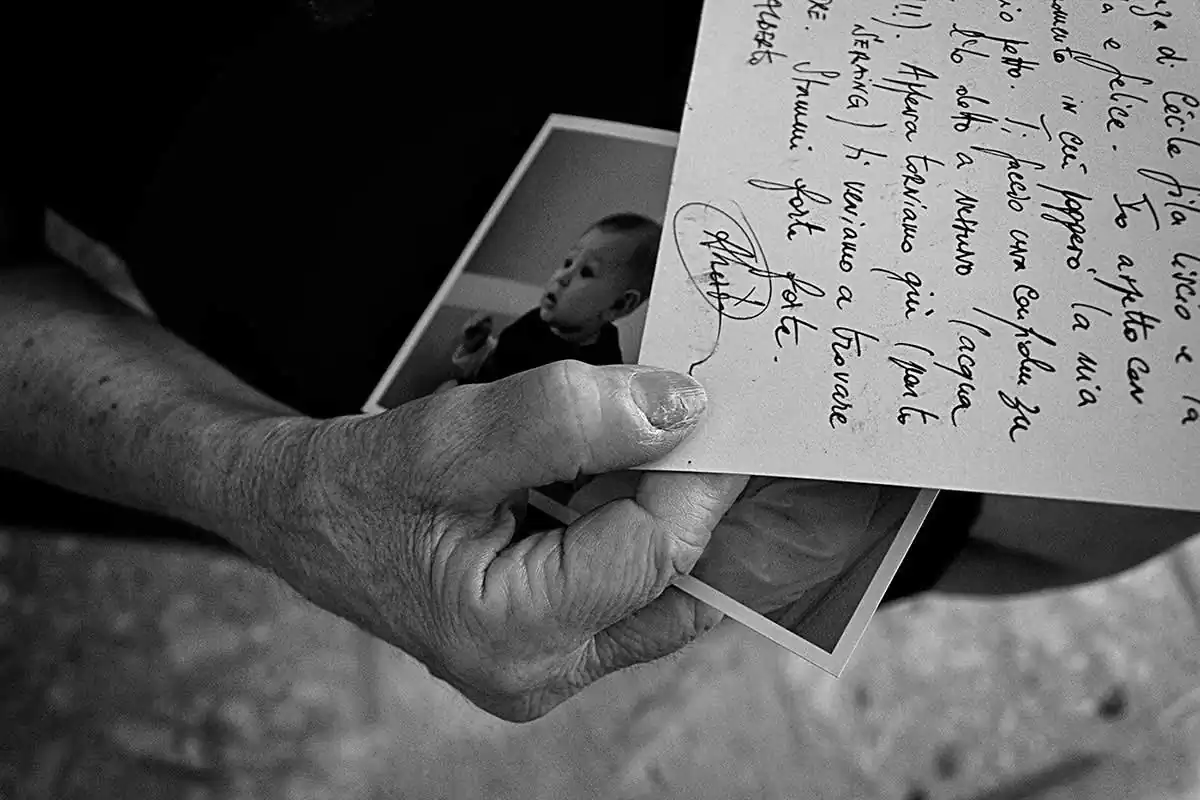 nza di Cécile fila liscio e la
a e felice. Io aspetto con
momento in cui poggerò la mia
petto. Ti faccio una confidenza
l'ho detto a nessuno (acqua
!!!). Appena torniamo qui (parto
SERAING) ti veniamo a trovare
RE. Stammi forte forte.
ALBERTO
Alberto